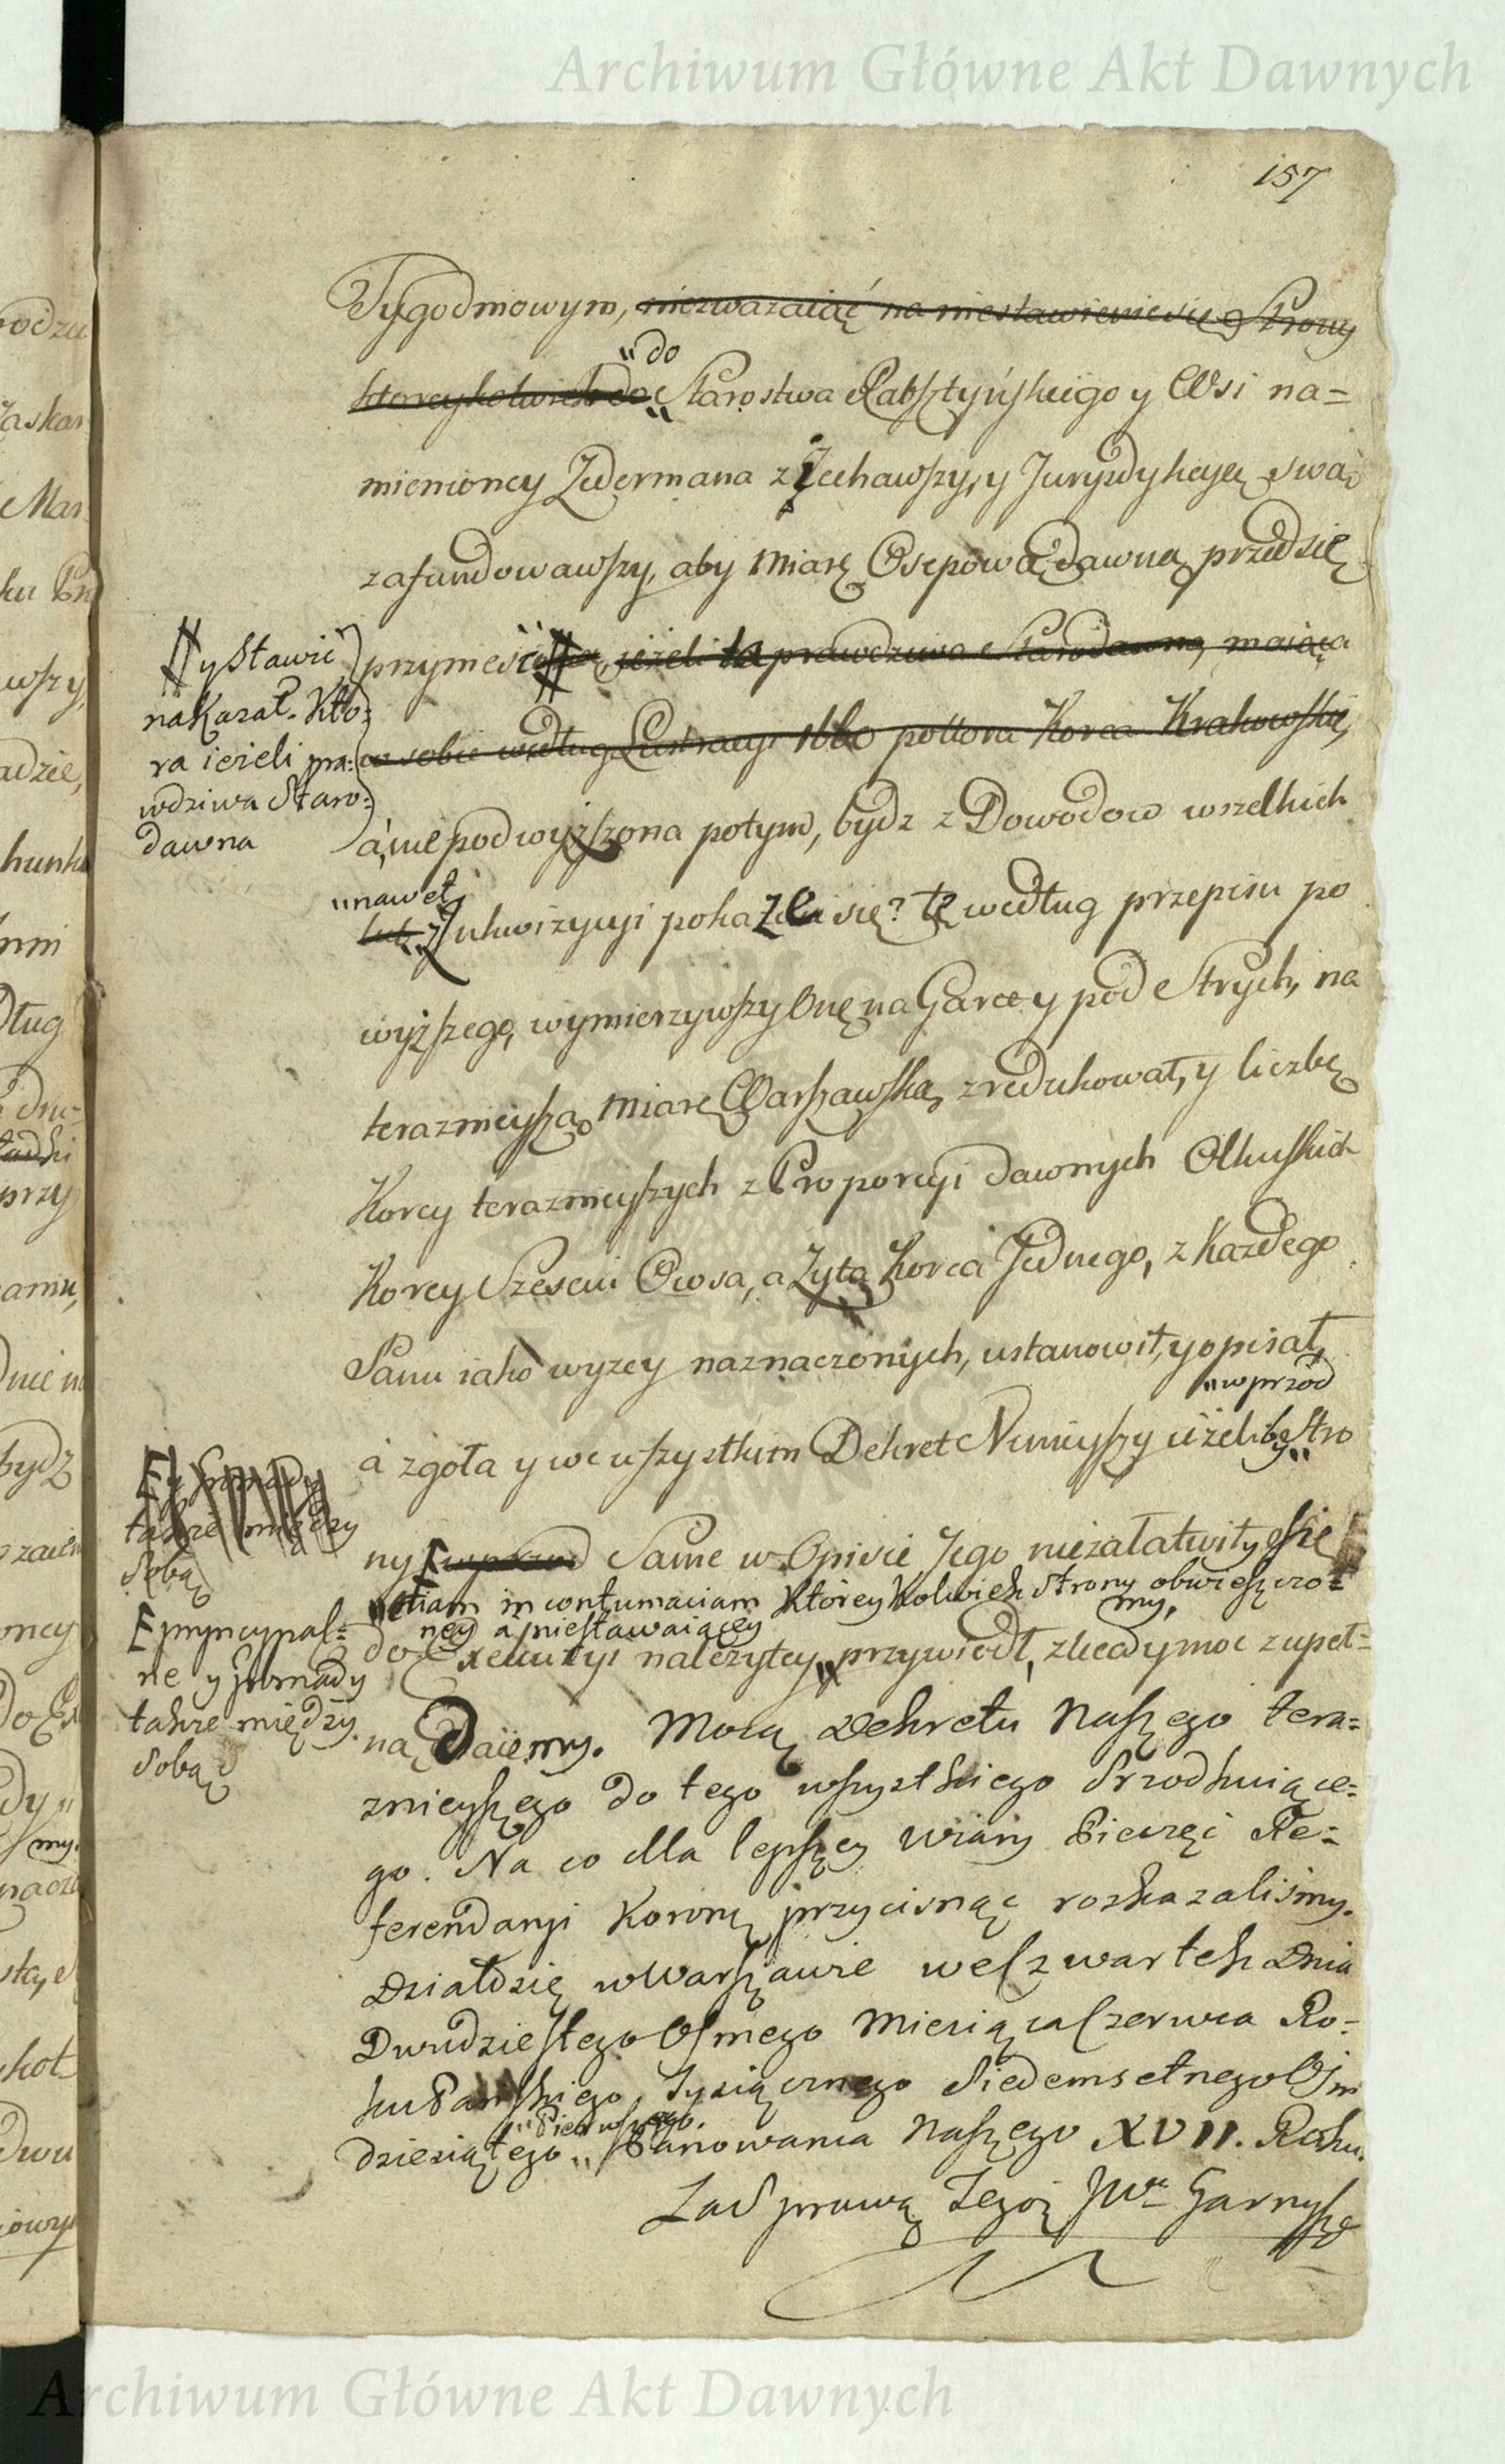 Archiwum Główne Akt Dawnych
157
Tygodniowym, niezwazaiąć na niestawienie się Strony
"do
ktoreykolwiek do Starostwa Rabsztyńskiego y Wsi na=
mienioney Zedermana zJechawszy, y Juryzdykcyą swaią
zafundowawszy, aby miarę Osepową dawną przedsię
przynieść jeżeli ta prawdziwa Starodawna, maiąca
w sobie według Lustracyi 1660 poltora Korca Krakowskie,
a, nie podwyższona potym, bydz z Dowodow wszelkich
"nawet
lub z Inkwizycyi pokaże się? tę według przepisu po
wyższego, wymierzywszy Onę na Garce y pod Strych, na
teraznieyszą miarę Warszawską zredukował, y liczbę
Korcy teraznieyszych z Proporcyi dawnych Olkuskich
Korcy Szesciu Owsa, a Zyta Korca Jednego, z każdego
Łanu iako wyzey naznaczonych, ustanowił, y opisał,
"wprzod
a zgoła y we wszystkim Dekret Ninieyszy ieżeliby Stro
ny wprzod Same w Opisie Jego niezałatwiły się
"etiam in contumaciam Którey Kolwiek Strony obwieszczo=
ney a niestawaiącey my,
do Exekucyi należytey przywiodł, zlecamy moc zupeł=
ną Daiemy. Mocą Dekretu Naszego tera=
znieyszego do tego wszystkiego Srzodkuiące=
go. Na co dla lepszey wiary Pieczęć Re=
ferendaryi Koronney przycisnąć rozkazaliśmy.
Działo się w Warszawie we Czwartek Dnia
Dwudziestego Osmego Miesiąca Czerwca Ro=
ku Pańskiego, Tysiącznego Siedemsetnego Osm
"Pierwszego.
dziesiątego Panowania Naszego XVII. Roku.
Za Sprawą Tegoż JWo Garnysza
y Stawić
nakazał. Kto=
ra ieżeli pra=
wdziwa Staro=
dawna
y Gromady
takze między
Sobą
pryncypal=
ne y Gromady
takze między
Sobą
Archiwum Główne Akt Dawnych